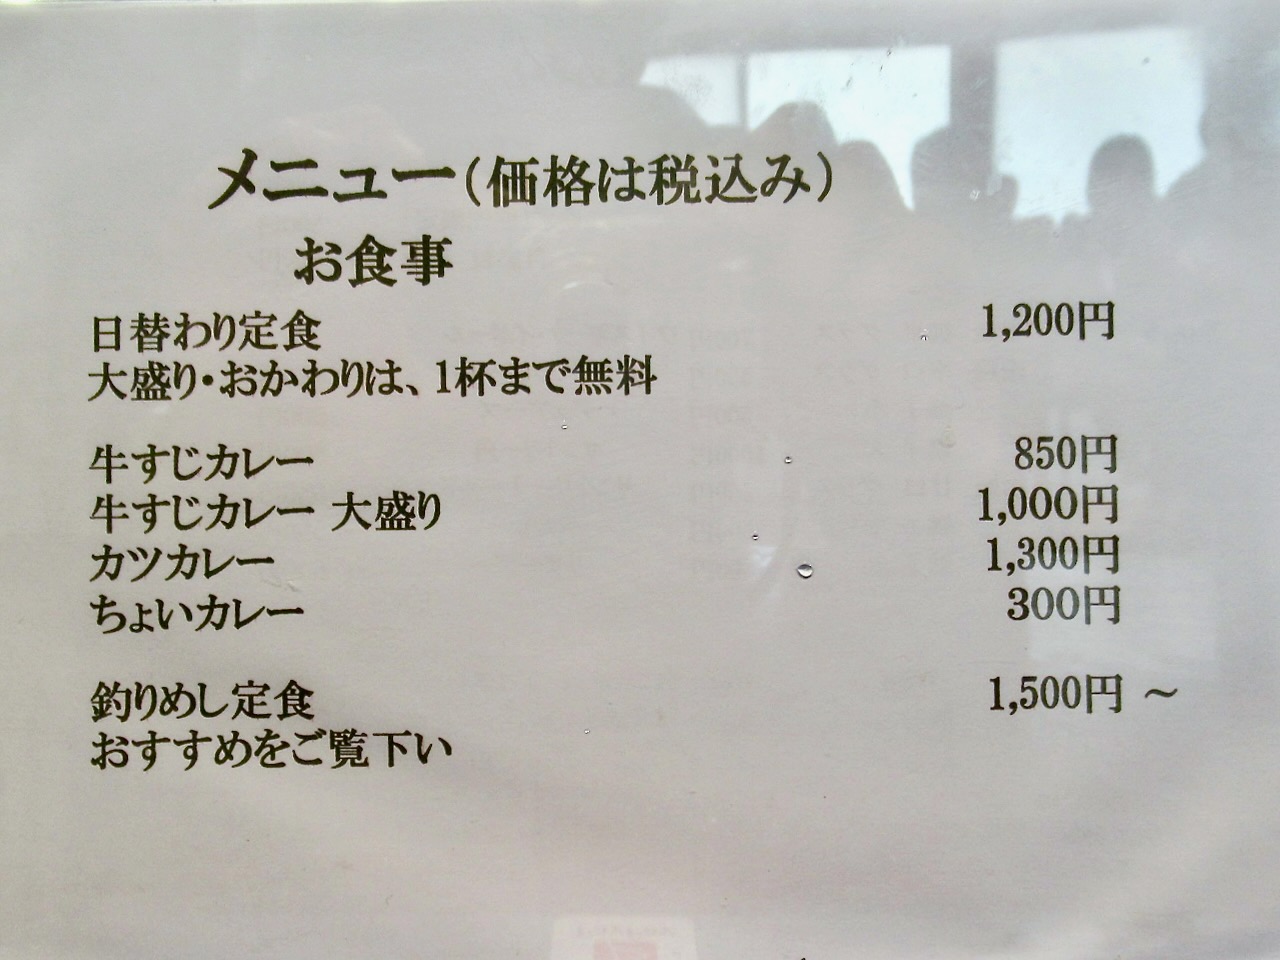 メニュー(価格は税込み)
お食事
日替わり定食 1,200円
大盛り・おかわりは、1杯まで無料
牛すじカレー 850円
牛すじカレー 大盛り 1,000円
カツカレー 1,300円
ちょいカレー 300円
釣りめし定食 1,500円 ～
おすすめをご覧下い